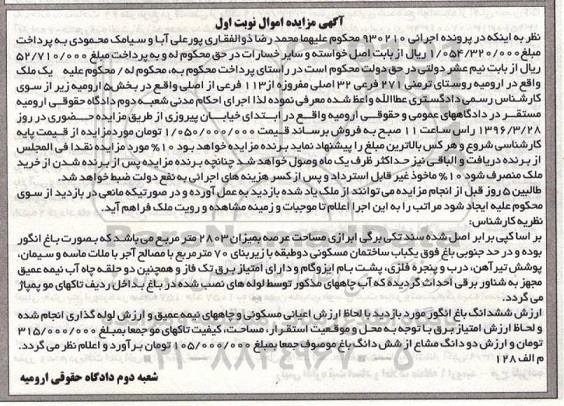 آگهی مزایده اموال نوبت اول
نظر به اینکه در پرونده اجرائی 930210 محکوم علیهما محمد رضا ذوالفقاری پورعلی آبا و سیامک محمودی به پرداخت
مبلغ 1/054/320/000 ریال از بابت اصل خواسته و سایر خسارات در حق محکوم له و به پرداخت مبلغ 52/710/000
ریال از بابت نیم عشر دولتی در حق دولت محکوم است در راستای پرداخت محکوم به، محکوم له / محکوم علیه یک ملک
واقع در ارومیه روستای ترمنی 271 فرعی 32 اصلی مفروزه از 113 فرعی از اصلی واقع در بخش 5 ارومیه زیر از سوی
کارشناس رسمی دادگستری عطااله واعظ شده معرفی نموده لذا اجرای احکام مدنی شعبه دوم دادگاه حقوقی ارومیه
مستقر در دادگاههای عمومی و حقوقی ارومیه واقع در ابتدای خیابان پیروزی از طریق مزایده حضوری در روز
1396/3/28 راس ساعت 11 صبح به فروش برساند قیمت 1/050/000/000 تومان مورد مزایده از قیمت پایه
کارشناسی شروع و هر کس بالاترین مبلغ را پیشنهاد نماید برنده مزایده خواهد بود 10% مورد مزایده نقدا فی المجلس
از برنده دریافت و الباقی نیز حداکثر ظرف یک ماه وصول خواهد شد چنانچه برنده مزایده پس از برنده شدن از خرید
ملک منصرف شود 10% ماخوذ غیر قابل استرداد و پس از کسر هزینه های اجرائی به نفع دولت ضبط خواهد شد.
طالبین 5 روز قبل از انجام مزایده می توانند از ملک یاد شده بازدید به عمل آورده و در صورتیکه مانعی در بازدید از سوی
محکوم علیه ایجاد شود مراتب را به این اجرا اعلام تا موجبات و زمینه مشاهده و رویت ملک فراهم آید.
نظریه کارشناس:
بر اساس کپی برابر اصل شده سند تکی برگی ابرازی مساحت عرصه بمیزان 2803 متر مربع می باشد که بصورت باغ انگور
بوده و در حد جنوبی باغ فوق یکباب ساختمان مسکونی دوطبقه با زیربنای 70 مترمربع با مصالح آجر با ملات ماسه و سیمان،
پوشش تیر آهن، درب و پنجره فلزی، پشت بام ایزوگام و دارای امتیاز برق تک فاز و همچنین دو حلقه چاه آب نیمه عمیق
مجهز به شناور برقی احداث گردیده که آب چاههای مذکور توسط لوله های نصب شده در باغ بداخل ردیف تاکهای مو پمپاژ
می گردد.
ارزش ششدانگ باغ انگور مورد بازدید با لحاظ ارزش اعیانی مسکونی و چاههای نیمه عمیق و ارزش لوله گذاری انجام شده
و لحاظ ارزش امتیاز برق با توجه به محل و موقعیت استقرار، مساحت، کیفیت تاکهای مو جمعا بمبلغ 315/000/000
تومان و ارزش دو دانگ مشاع از شش دانگ باغ موصوف جمعا بمبلغ 105/000/000 تومان برآورد و اعلام نظر می گردد.
م الف 128
شعبه دوم دادگاه حقوقی ارومیه